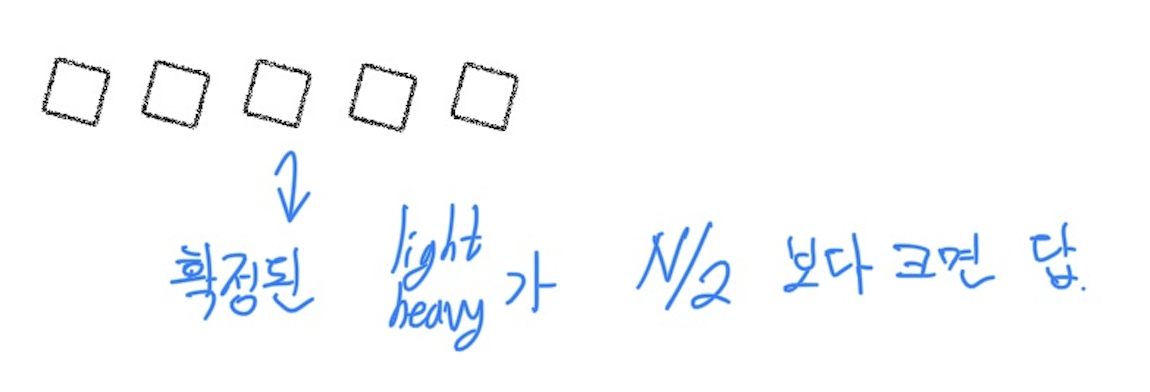 확정된 light heavy 가 N/2 보다 크면 답.